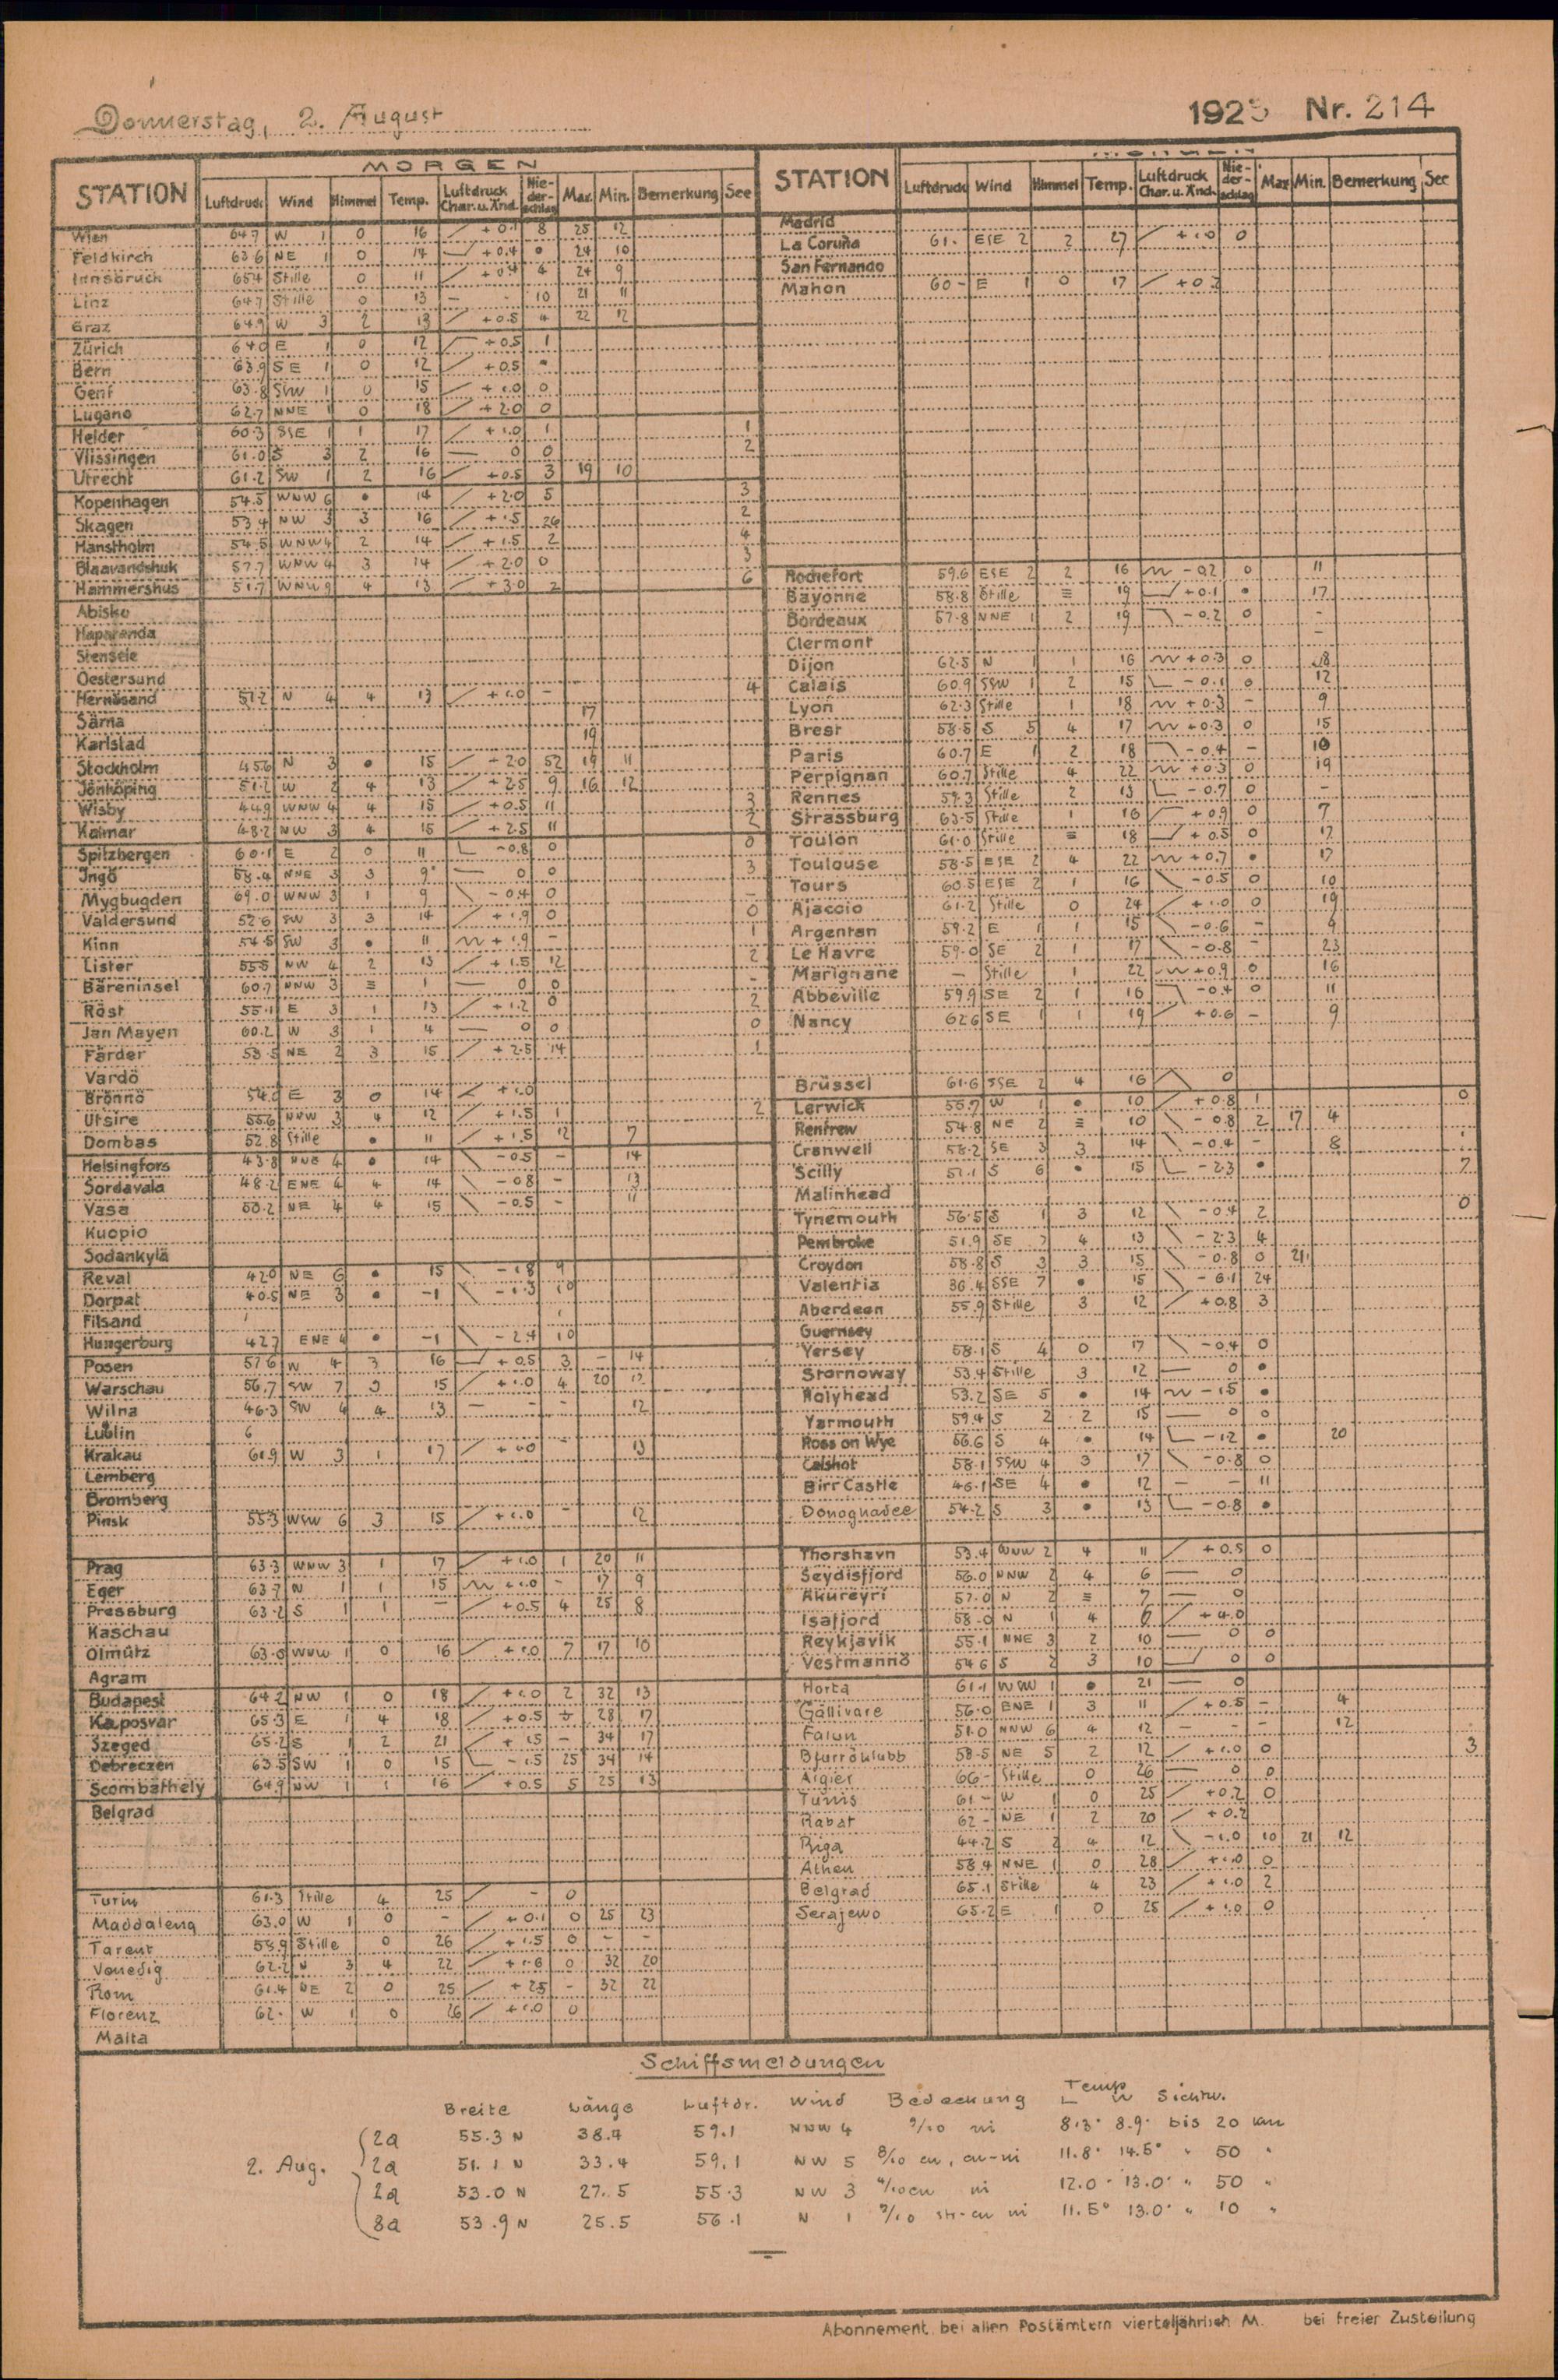 Donnerstag, 2. August 1925 Nr. 214
MORGEN
STATION Luftdruck Wind Himmel Temp. Luftdruck Char. u. Änd. Nie-der-schlag Max. Min. Bemerkung See
Wien 64.7 W 1 0 16 +0.1 8 25 12
Feldkirch 63.6 NE 1 0 14 +0.4 • 24 10
Innsbruck 65.4 Stille 0 11 +0.4 4 24 9
Linz 64.7 Stille 0 13 – - 10 21 11
Graz 64.9 W 3 2 13 +0.5 4 22 12
Zürich 64.0 E 1 0 12 +0.5 1
Bern 63.9 SE 1 0 12 +0.5 •
Genf 63.8 SSW 1 0 15 +1.0 0
Lugano 62.7 NNE 1 0 18 +2.0 0
Helder 60.3 SSE 1 1 17 +1.0 1 1
Vlissingen 61.0 S 3 2 16 — 0 0 2
Utrecht 61.2 SW 1 2 16 +0.5 3 19 10
Kopenhagen 54.5 WNW 6 • 14 +2.0 5 3
Skagen 53.4 NW 3 3 16 +1.5 26 2
Hanstholm 54.5 WNW 4 2 14 +1.5 2 4
Blaavandshuk 57.7 WNW 4 3 14 +2.0 0 3
Hammershus 51.7 WNW 9 4 13 +3.0 2 6
Abisko
Haparanda
Stensele
Oestersund
Hernösand 51.2 N 4 4 13 +1.0 – 4
Särna 17
Karlstad 19
Stockholm 45.6 N 3 • 15 +2.0 52 19 11
Jönköping 51.2 W 2 4 13 +2.5 9 16 12
Wisby 44.9 WNW 4 4 15 +0.5 11 3
Kalmar 48.2 NW 3 4 15 +2.5 11 2
Spitzbergen 60.1 E 2 0 11 -0.8 0 0
Ingö 58.4 NNE 3 3 9 — 0 0 3
Mygbugden 69.0 WNW 3 1 9 -0.4 0 –
Valdersund 52.6 SW 3 3 14 +1.9 0 0
Kinn 54.5 SW 3 • 11 +1.9 – 1
Lister 55.5 NW 4 2 13 +1.5 12 2
Bäreninsel 60.7 NNW 3 ≡ 1 — 0 0 –
Röst 55.1 E 3 1 13 +1.2 0 2
Jan Mayen 60.2 W 3 1 4 — 0 0 0
Färder 53.5 NE 2 3 15 +2.5 14 1
Vardö
Brönnö 54.0 E 3 0 14 +1.0
Utsire 55.6 NNW 3 4 12 +1.5 1 2
Dombas 52.8 Stille • 11 +1.5 12 7
Helsingfors 43.8 NNE 4 • 14 -0.5 – 14
Sordavala 48.2 ENE 4 4 14 -0.8 – 13
Vasa 50.2 NE 4 4 15 -0.5 – 11
Kuopio
Sodankylä
Reval 42.0 NE 6 • 15 -1.8 9
Dorpat 40.5 NE 3 • -1 -1.3 10
Filsand
Hungerburg 42.7 ENE 4 • -1 -2.4 10
Posen 57.6 W 4 3 16 +0.5 3 – 14
Warschau 56.7 SW 7 3 15 +1.0 4 20 12
Wilna 46.3 SW 4 4 13 – - - 12
Lublin 6
Krakau 61.9 W 3 1 17 +1.0 – 13
Lemberg
Bromberg
Pinsk 55.3 WSW 6 3 15 +1.0 – 12
Prag 63.3 WNW 3 1 17 +1.0 1 20 11
Eger 63.7 N 1 1 15 +1.0 – 17 9
Pressburg 63.2 S 1 1 – +0.5 4 25 8
Kaschau
Olmütz 63.0 WNW 1 0 16 +1.0 7 17 10
Agram
Budapest 64.2 NW 1 0 18 +1.0 2 32 13
Kaposvar 65.3 E 1 4 18 +0.5 28 17
Szeged 65.2 S 1 2 21 +1.5 – 34 17
Debreczen 63.5 SW 1 0 15 -1.5 25 34 14
Scombathely 64.9 NW 1 1 16 +0.5 5 25 13
Belgrad
Turin 61.3 Stille 4 25 - 0
Maddalena 63.0 W 1 0 – +0.1 0 25 23
Tarent 58.9 Stille 0 26 +1.5 0 – –
Venedig 62.2 N 3 4 22 +1.6 0 32 20
Rom 61.4 NE 2 0 25 +2.5 – 32 22
Florenz 62. W 1 0 26 +1.0 0
Malta
STATION Luftdruck Wind Himmel Temp. Luftdruck Char. u. Änd. Nie-der-schlag Max. Min. Bemerkung See
Madrid
La Coruña 61. ESE 2 2 27 +1.0 0
San Fernando
Mahon 60 – E 1 0 17 +0.2
Rochefort 59.6 ESE 2 2 16 -0.2 0 11
Bayonne 58.8 Stille ≡ 19 +0.1 • 17
Bordeaux 57.8 NNE 1 2 19 -0.2 0 –
Clermont –
Dijon 62.5 N 1 1 16 +0.3 0 18
Calais 60.9 SSW 1 2 15 -0.1 0 12
Lyon 62.3 Stille 1 18 +0.3 – 9
Brest 58.5 S 5 4 17 +0.3 0 15
Paris 60.7 E 1 2 18 -0.4 – 10
Perpignan 60.7 Stille 4 22 +0.3 0 19
Rennes 59.3 Stille 2 13 -0.7 0 –
Strassburg 63.5 Stille 1 16 +0.9 0 7
Toulon 61.0 Stille ≡ 18 +0.5 0 17
Toulouse 58.5 ESE 2 4 22 +0.7 • 17
Tours 60.5 ESE 2 1 16 -0.5 0 10
Ajaccio 61.2 Stille 0 24 +1.0 0 19
Argentan 59.2 E 1 1 15 -0.6 – 9
Le Havre 59.0 SE 2 1 17 -0.8 – 23
Marignane – Stille 1 22 +0.9 0 16
Abbeville 59.9 SE 2 1 16 -0.4 0 11
Nancy 62.6 SE 1 1 19 +0.6 – 9
Brüssel 61.6 SSE 2 4 16 0
Lerwick 55.7 W 1 • 10 +0.8 1 0
Renfrew 54.8 NE 2 ≡ 10 -0.8 2 17 4
Cranwell 58.2 SE 3 3 14 -0.4 – 8
Scilly 51.1 S 6 • 15 -2.3 • 7
Malinhead
Tynemouth 56.5 S 1 3 12 -0.4 2 0
Pembroke 51.9 SE 7 4 13 -2.3 4
Croydon 58.8 S 3 3 15 -0.8 0 21
Valentia 36.4 SSE 7 • 15 -6.1 24
Aberdeen 55.9 Stille 3 12 +0.8 3
Guernsey
Yersey 58.1 S 4 0 17 -0.4 0
Stornoway 53.4 Stille 3 12 — 0 •
Holyhead 53.2 SE 5 • 14 -1.5 •
Yarmouth 59.4 S 2 2 15 — 0 0
Ross on Wye 56.6 S 4 • 14 -1.2 • 20
Calshot 58.1 SSW 4 3 17 -0.8 0
Birr Castle 46.1 SE 4 • 12 – – 11
Donoghadee 54.2 S 3 • 13 -0.8 •
Thorshavn 53.4 WNW 2 4 11 +0.5 0
Seydisfjord 56.0 NNW 2 4 6 — 0
Akureyri 57.0 N 2 ≡ 7 — 0
Isafjord 58.0 N 1 4 6 +4.0
Reykjavik 55.1 NNE 3 2 10 — 0 0
Vestmannö 54.6 S 2 3 10 0 0
Horta 61.1 WSW 1 • 21 — 0
Gällivare 56.0 ENE 1 3 11 +0.5 – 4
Falun 51.0 NNW 6 4 12 – - - 12
Bjurröklubb 58.5 NE 5 2 12 +1.0 0 3
Algier 66- Stille 0 26 — 0 0
Tunis 61- W 1 0 25 +0.2 0
Rabat 62- NE 1 2 20 +0.2
Riga 44.2 S 2 4 12 -1.0 10 21 12
Athen 58.4 NNE 1 0 28 +1.0 0
Belgrad 65.1 Stille 4 23 +1.0 2
Serajewo 65.2 E 1 0 25 +1.0 0
Schiffsmeldungen
Breite Länge Luftdr. Wind Bedeckung Temp L W Sichtw.
2a 55.3 N 38.9 59.1 NNW 4 9/10 ni 8.3° 8.9° bis 20 km
2. Aug. 2a 51.1 N 33.4 59.1 NW 5 8/10 cu, cu-ni 11.8° 14.5° " 50 "
2a 53.0 N 27.5 55.3 NW 3 4/10 cu ni 12.0° 13.0° " 50 "
8a 53.9 N 25.5 56.1 N 1 9/10 str-cu ni 11.5° 13.0° " 10 "
Abonnement bei allen Postämtern vierteljährlich M. bei freier Zustellung